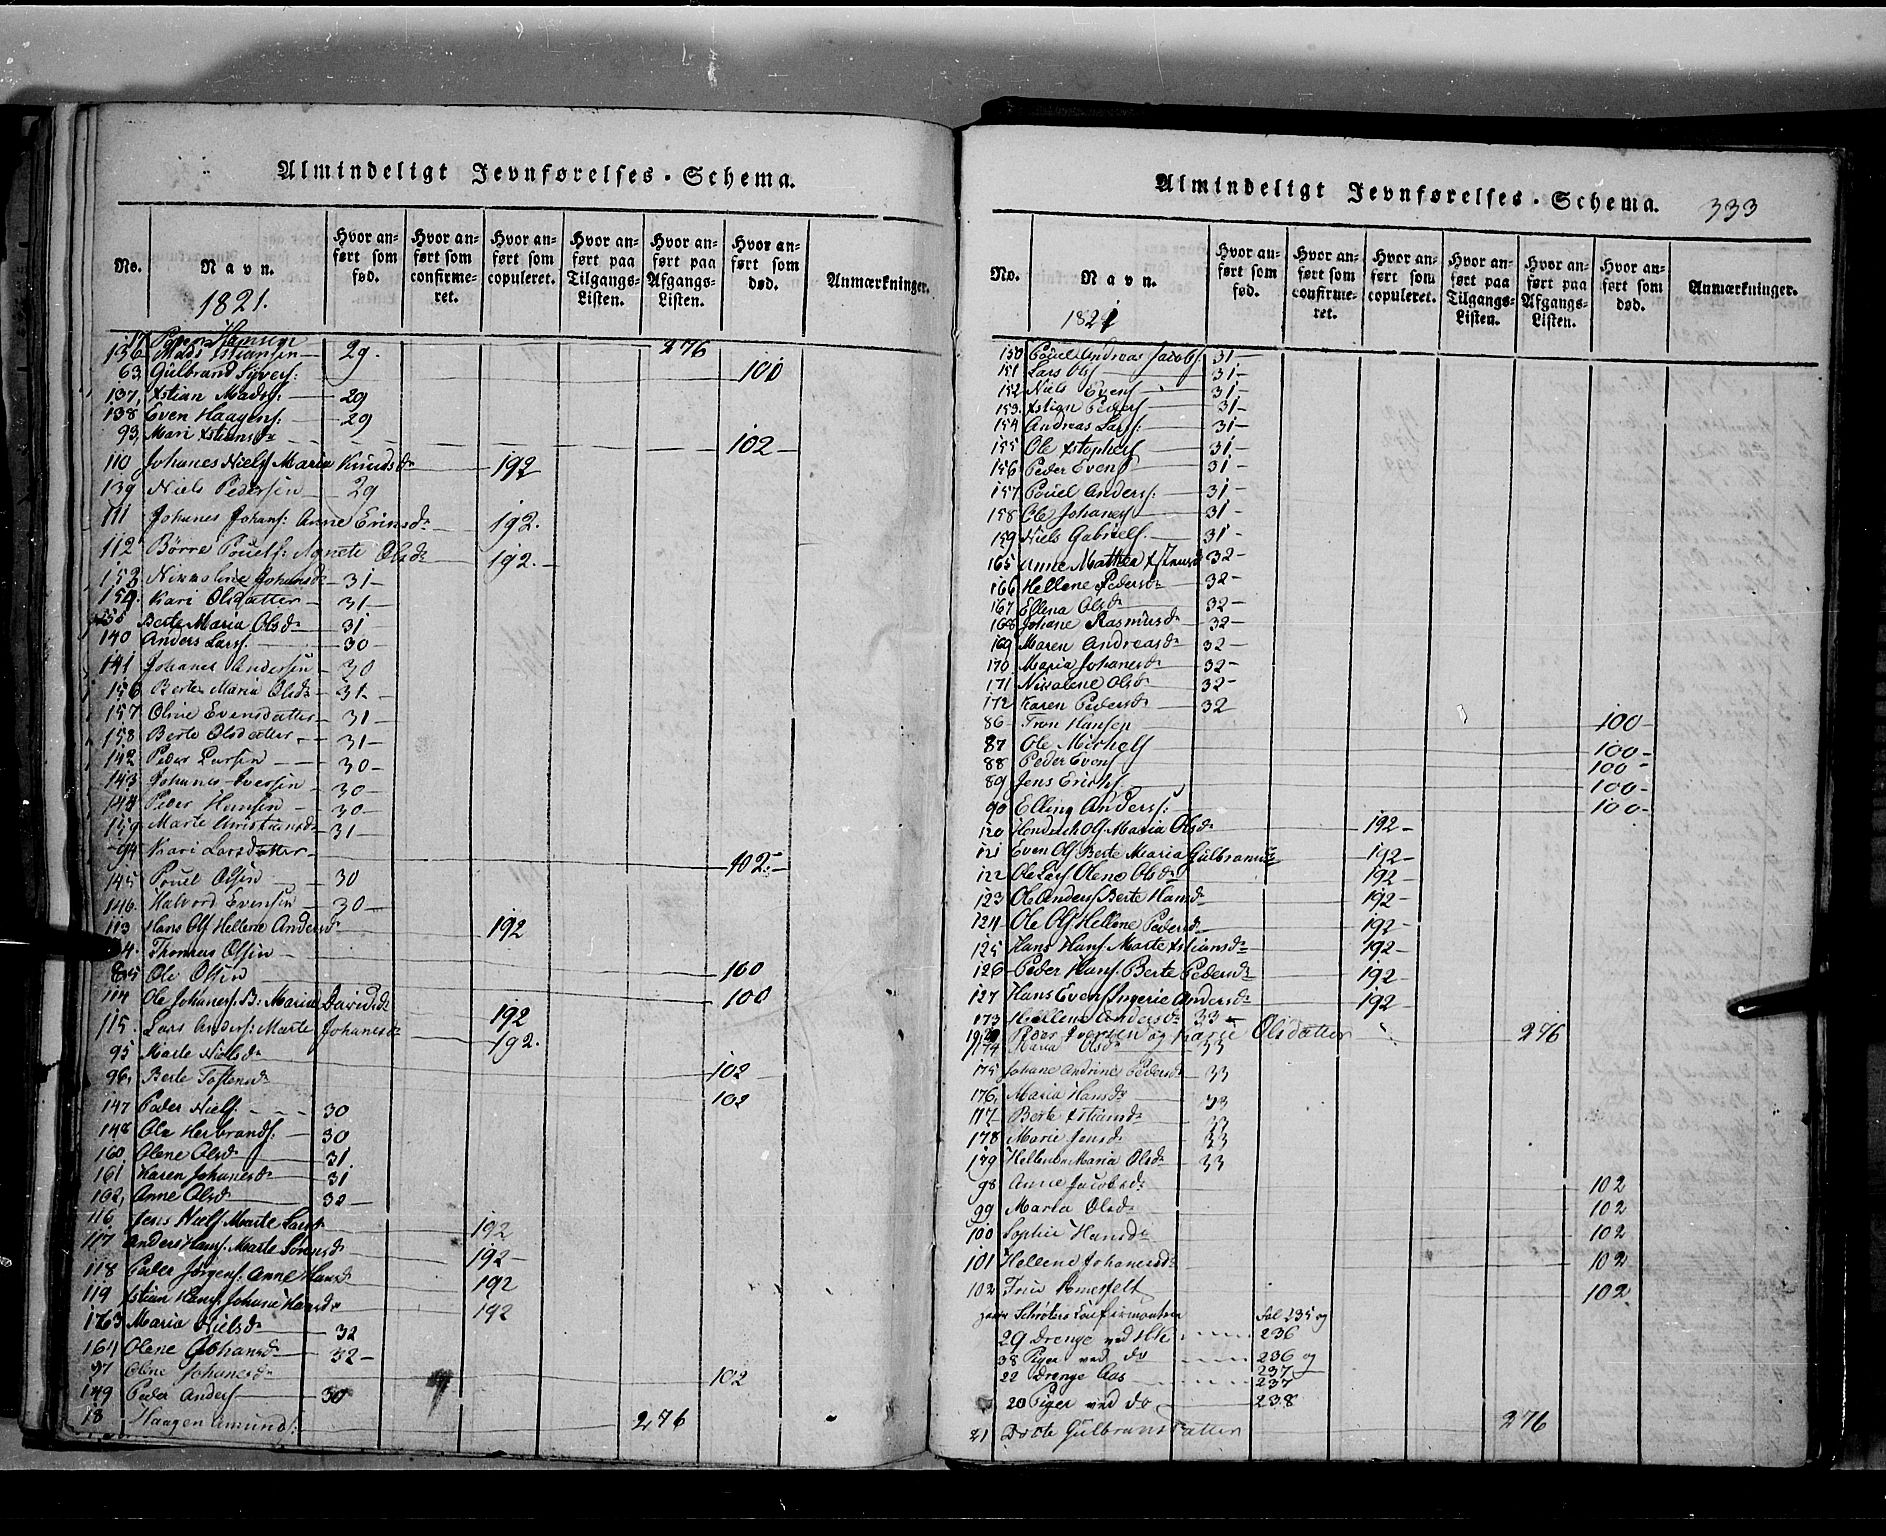 Almindeligt Jevnførelses-Schema.
No.
Navn.
1821.
Hvor anført som fød.
Hvor anført som confirmeret.
Hvor anført som copuleret.
Hvor anført paa Tilgangs-Listen.
Hvor anført paa Afgangs-Listen.
Hvor anført som død.
Anmærkninger.
17 Peder Hansen 276
136 Mads Xstiansen 29.
63 Gulbrand Syvers: 101
137, Xstian Mads: 29
138 Even Haagens: 29
93, Mari Xstiansdr 102
110 Johanes Niels Maria Knudsdr 192
139 Niels Pedersen 29
111 Johanes Johans: Anne Erinsdr 192.
112 Børre Pouels: Agnete Olsdr 192.
153 Nikoline Johansdr 31
154. Kari Olsdatter 31
155 Berte Maria Olsdr 31
140 Anders Lars: 30
141 Johanes Andersen 30
156 Berte Maria Olsdr 31
157 Oline Evensdatter 31
158 Berte Olsdatter 31
142 Peder Larsen 30
143 Johanes Iversen 30
144 Peder Hansen 30
159 Marte Christiansdr 31
94 Kari Larsdatter 102
145 Pouel Olsen 30
146 Halvord Evensen 30
113 Hans Ols Hellene Andersdr 192
84. Thomas Olsen 100
85 Ole Olsen 100
114 Ole Johanes: B: Maria Davidsdr 192
115. Lars Anders: Marte Johanesdr 192.
95 Marte Nielsdr 102
96, Berte Tostensdr 102
147 Peder Niels: 30
148 Ole Herbrands: 30
160 Olene Olsdr 31
161 Karen Johanesdr 31
162, Anne Olsdr 32
116 Jens Niels Marte Larsdr 192
117 Anders Hans: Marte Sørensdr 192
118 Peder Jørgens: Anne Hansdr 192
119 Xstian Hans: Johane Hansdr 192
163 Maria Nielsdr 32
164 Olene Johansdr 32
97 Oline Johanesdr 102
149 Peder Anders 30
18 Haagen Amunds: 276
Almindeligt Jevnførelses-Schema. 333
No.
Navn.
1821
Hvor anført som fød.
Hvor anført som confirmeret.
Hvor anført som copuleret.
Hvor anført paa Tilgangs-Listen.
Hvor anført paa Afgangs-Listen.
Hvor anført som død.
Anmærkninger.
150 Pouel Andreas Jacobs: 31
151 Lars Ols 31
152 Niels Evens 31
153. Xstian Peders 31
154 Andreas Lars: 31
155 Ole Xstophers 31
156 Peder Evens 31
157 Pouel Anders: 31
158 Ole Johanes 31
159 Niels Gabriels 31
165 Anne Mathea Xstensdr 32
166 Hellene Pedersdr 32
167 Ellena Olsdr 32
168 Johane Rasmusdr 32
169 Maren Andreasdr 32
170 Maria Johanesdr 32
171 Nikolene Olsdr 32
172 Karen Pedersdr 32
86 Tron Hansen 100
87 Ole Michels 100
88 Peder Evens 100
89 Jens Erichs 100
90 Elling Anders: 100
120 Hendrich Ols: Maria Olsdr 192
121 Even Ols Berte Maria Gulbransdr 192
122 Ole Lars Olene Olsdr 192
123 Ole Anders Berte Hansdr 192
124 Ole Ols Hellene Pedersdr 192
125 Hans Hans Marte Xstiansdr 192
126 Peder Hans: Berte Pedersdr 192
127 Hans Evens Ingerie Andersdr 192
173 Hellene Andersdr 33
Peder Iversen og Karie Olsdatter 276
174 Maria Olsdr 33
175 Johane Andrine Pedersdr 33
176, Maria Hansdr 33
117 Berte Xstiansdr 33
178 Marie Jensdr 33
179 Hellene Maria Olsdr 33
98 Anne Jacobsdr 102
99 Maria Olsdr 102
100 Sophie Hansdr 102
101 Hellene Johanesdr 102
102 Frue 102
Schrøters Fol 235 og
29 Drenge ved 236
38 Piger ved do 236 og 237
22 Drenge Aas 237
20 Piger ved do 238
21 Dorte Gulbransdatter 276